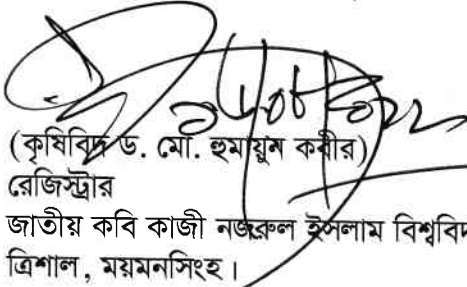 (কৃষিবিদ ড. মো. হুমায়ুন কবীর)
রেজিস্ট্রার
জাতীয় কবি কাজী নজরুল ইসলাম বিশ্ববিদ
ত্রিশাল, ময়মনসিংহ।